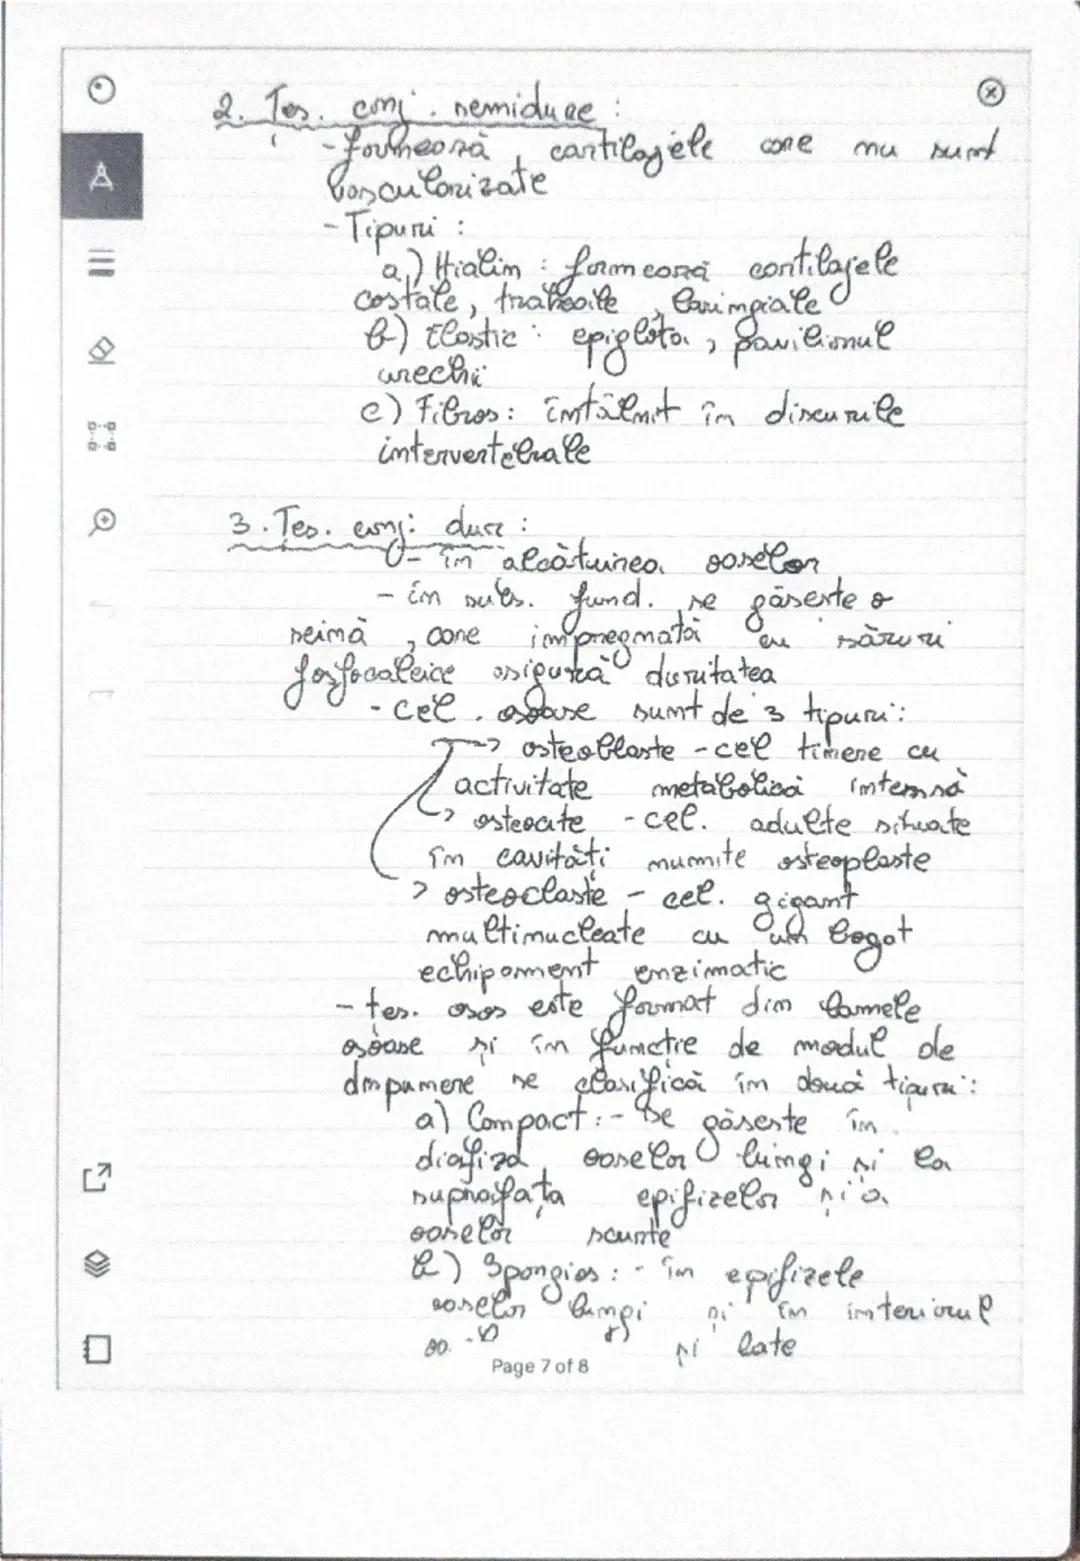 2. Țes. conj. semidure :
- formează cartilajele care nu sunt
vascularizate
- Tipuri :
a) Hialin : formează cartilajele
costale, traheale, laringiale
b) Elastic : epiglota, pavilionul
urechii
c) Fibros : întâlnit în discurile
intervertebrale
3. Țes. conj. dur :
- în alcătuirea oaselor
- în subs. fund. se găsește o
seimă, care impregnată cu săruri
fosfocalcice asigură duritatea
- cel. osoase sunt de 3 tipuri :
→ osteoblaste - cel tinere cu
activitate metabolică intensă
→ osteocite - cel. adulte situate
în cavități numite osteoplaste
> osteoclaste - cel. gigant
multinucleate cu un bogat
echipament enzimatic
- țes. osos este format din lamele
osoase și în funcție de modul de
dispunere se clasifică în două tipuri :
a) Compact : - se găsește în
diafiza oaselor lungi și la
suprafața epifizelor și a
oaselor scurte
b) Spongios : - în epifizele
oaselor lungi și în interiorul
și late
Page 7 of 8